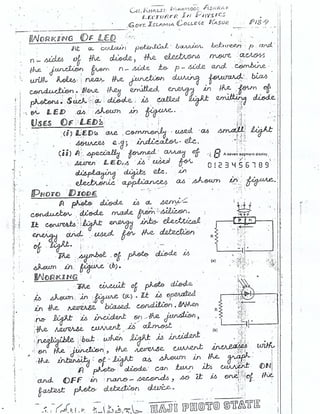 LECTURER IN PHYSICS
GOVT. ISLAMIA COLLEGE KASUR
WORKING OF LED
At a certain potential barrier between p and
n-sides of the diode, the electrons move across
the junction from n-side to p-side and combine
with holes near the junction during forward bias
conduction. Here they emitted energy in the form of
photons. Such a diode is called light emitting diode
or LED as shown in figure.
USES OF LED'S
(i) LED's are commonly used as small light
sources e.g; indicator etc.
(ii) A specially formed array of
seven LED,s is used for
displaying digits etc. in
electronic appliances as shown in figure.
8
0 1 2 3 4 5 6 7 8 9
PHOTO DIODE
A photo diode is a semi-
conductor diode made from silicon.
It converts light energy into electrical
energy and used for the detection
of light.
The symbol of photo diode is
shown in figure (b).
WORKING
The circuit of photo diode
is shown in figure (a). It is operated
in the reverse biased condition. When
no light is incident on the junction,
the reverse current is almost
negligible but when light is incident
on the junction, the reverse current increases with
the intensity of light as shown in the graph.
A photo diode can turn its current ON
and OFF in nano-seconds, so it is one of the
fastest photo detection device.
HAJI PHOTO STATE